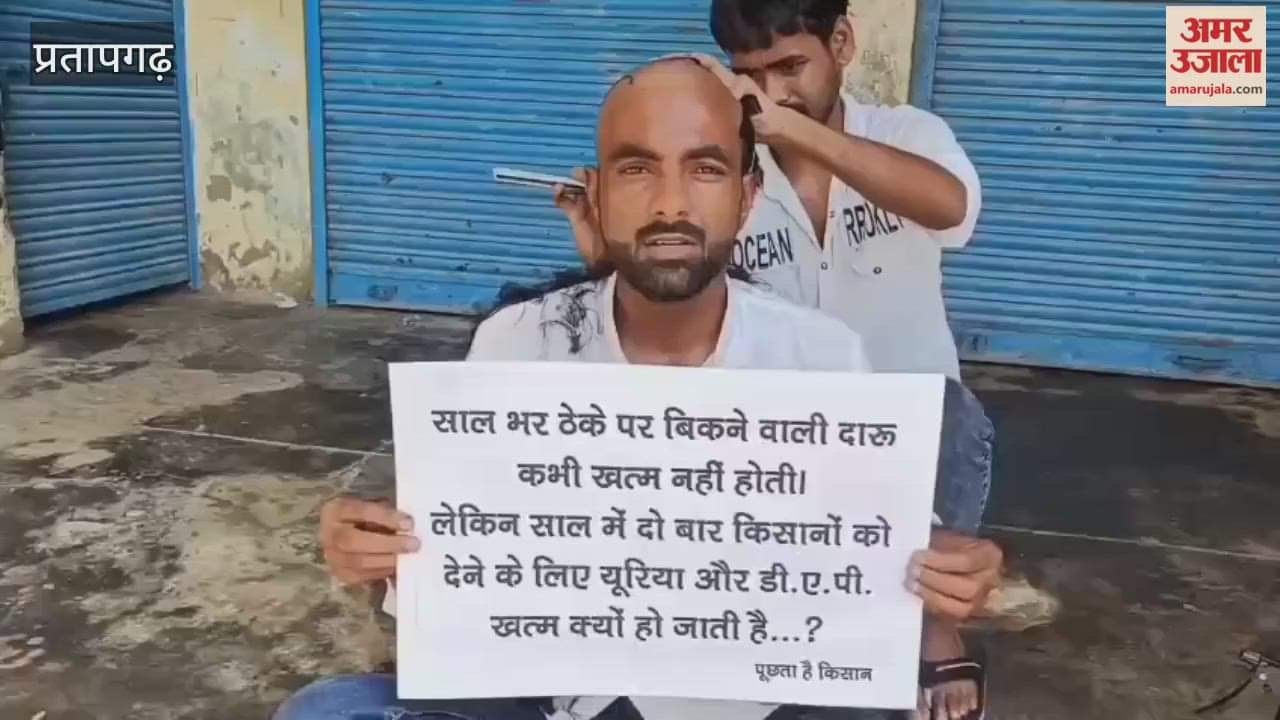 प्रतापगढ़
अमर
उजाला
amarujala.com
OCEAN
साल भर ठेके पर बिकने वाली दारू
कभी खत्म नहीं होती।
लेकिन साल में दो बार किसानों को
देने के लिए यूरिया और डी.ए.पी.
खत्म क्यों हो जाती है...?
पूछता है किसान